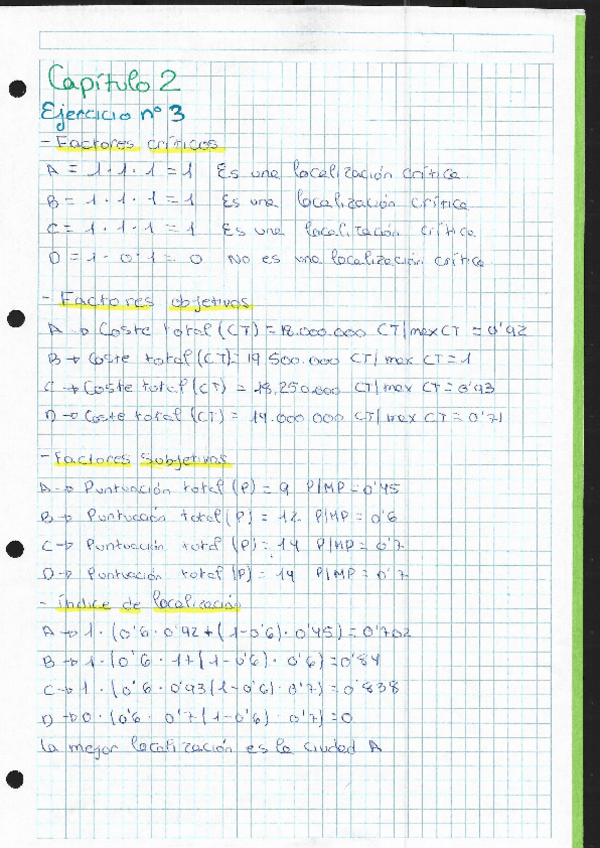 Capítulo 2
Ejercicio nº 3
- Factores críticos
A = 1 · 1 · 1 = 1 Es una localización crítica.
B = 1 · 1 · 1 = 1 Es una localización crítica
C = 1 · 1 · 1 = 1 Es una localización crítica
D = 1 · 0 · 1 = 0 No es una localización crítica
- Factores objetivos
A → Coste total (CT) = 18.000.000 CT/max CT = 0'92
B → Coste total (CT) = 19,500.000 CT/max CT = 1
C → Coste total (CT) = 18,250.000 CT/max CT = 0'93
D → Coste total (CT) = 14.000 000 CT/max CT = 0'71
- Factores subjetivos
A → Puntuación total (P) = 9 P/MP = 0'45
B → Puntuación total (P) = 12 P/MP = 0'6
C → Puntuación total (P) = 14 P/MP = 0'7
D → Puntuación total (P) = 14 P/MP = 0'7
- índice de localización
A → 1 · (0'6 · 0'92 + (1-0'6) · 0'45) = 0'702
B → 1 · (0'6 · 1 + (1-0'6) · 0'6) = 0'84
C → 1 · (0'6 · 0'93 (1-0'6) · 0'7) = 0'838
D → 0 · (0'6 · 0'7 (1-0'6) · 0'7) = 0
la mejor localización es la ciudad A